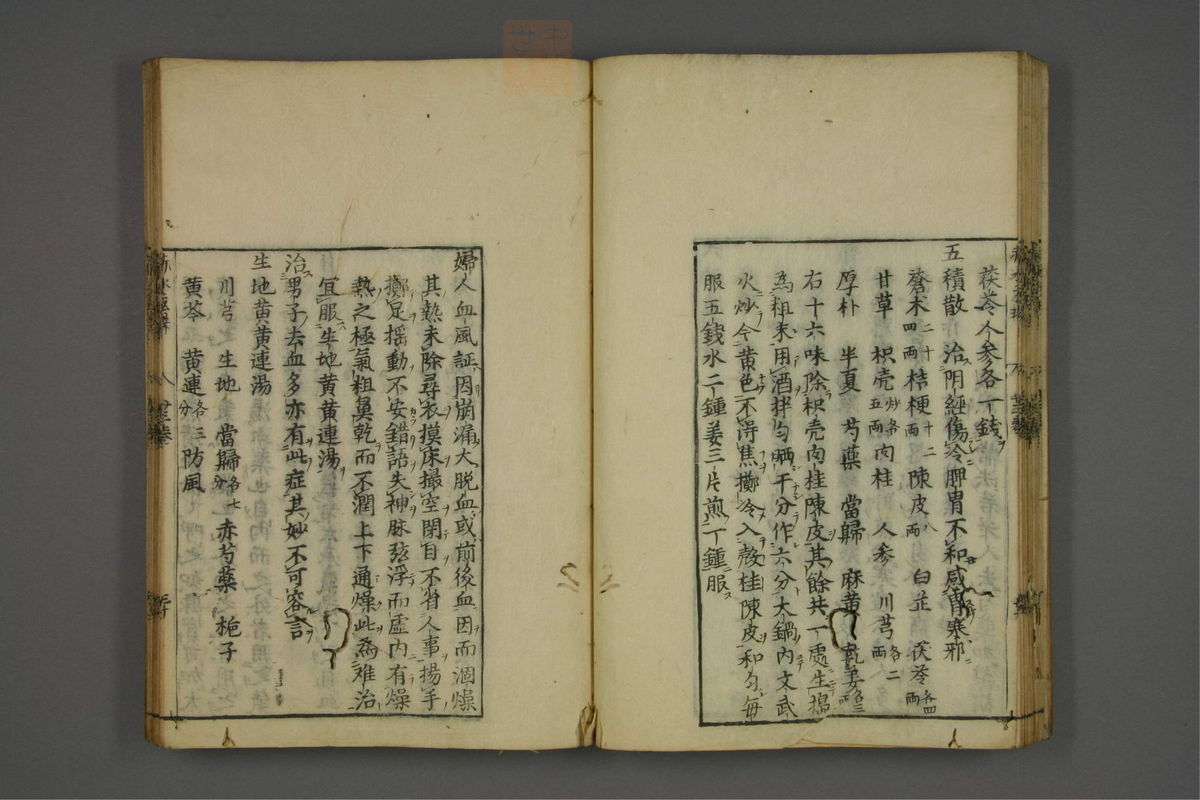 茯苓人参各一錢
五積散 治陰經傷冷脾胃不和感冒寒邪
蒼朮二十四兩桔梗十二兩陳皮八兩 白芷 茯苓各四兩
甘草 枳壳炒各五兩肉桂 人参 川芎各二兩
厚朴 半夏 芍藥 當歸 麻黄 乾姜各三兩
右十六味除枳壳肉桂陳皮其餘共一處生搗
為粗末用酒拌匀晒干分作六分大鍋内文武
火炒令黄色不得焦擲冷入殻桂陳皮和匀毎
服五錢水二鍾姜三片煎一鍾服
婦人血風証因崩漏大脱血或前後血因而涸燥
其熱未除尋衣摸床撮空閉目不省人事揚手
擲足揺動不安錯語失神脉弦浮而虚内有燥
熱之極氣粗鼻乾而不潤上下通燥此為难治
宜服生地黄黄連湯
治男子去血多亦有此症其妙不可容言
生地黄黄連湯
川芎 生地 當歸各七分 赤芍藥 梔子
黄芩 黄連各三分防風